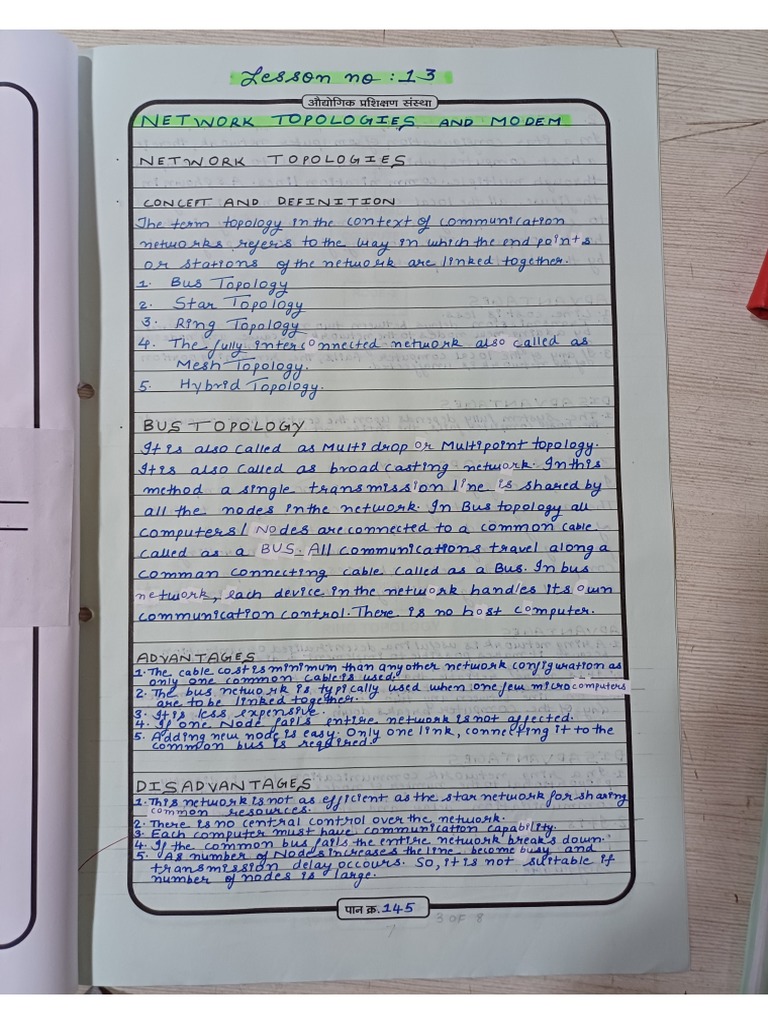 Lesson no : 13
औद्योगिक प्रशिक्षण संस्था
NETWORK TOPOLOGIES AND MODEM
NETWORK TOPOLOGIES
CONCEPT AND DEFINITION
The term topology in the context of communication
networks, refers to the way in which the end points
or stations of the network are linked together.
1. Bus Topology
2. Star Topology
3. Ring Topology
4. The fully interconnected network also called as
Mesh Topology.
5. Hybrid Topology.
BUS TOPOLOGY
It is also called as Multi drop or Multipoint topology.
It is also called as broad casting network. In this
method a single transmission line is shared by
all the nodes in the network. In Bus topology all
computers/ Nodes are connected to a common cable
called as a BUS. All communications travel along a
comman connecting cable called as a Bus. In bus
network, each device in the network handles its own
communication control. There is no host computer.
ADVANTAGES
1. The cable cost is minimum than any other network configuration as
only one common cable is used.
2. The bus network is typically used when one few micro computers
are to be linked together.
3. It is less expensive.
4. If one Node fails entire network is not affected.
5. Adding new node is easy. Only one link, connecting it to the
common bus is required.
DISADVANTAGES
1. This network is not as efficient as the star network for sharing
common resources.
2. There is no central control over the network.
3. Each computer must have communication capability.
4. If the common bus fails the entire network breaks down.
5. As number of Nodes increases the line become busy and
transmission delay occours. So, it is not suitable if
number of nodes is large.
पान क्र. 145
3 OF 8